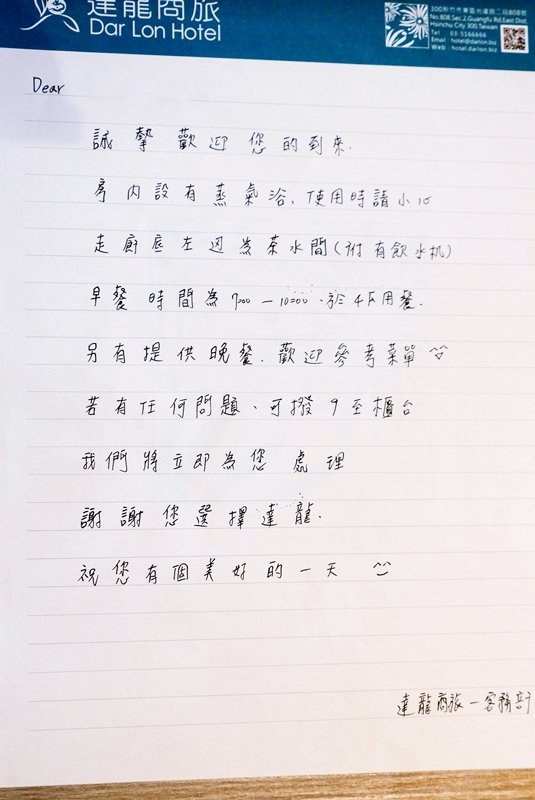 達龍商旅
Dar Lon Hotel
300新竹市東區光復路二段808號
No.808,Sec.2,Guangfu Rd,East Dist.
Hsinchu City 300,Taiwan
Tel : 03-5166666
Email : hotel@darlon.biz
Web : hotel.darlon.biz
Dear
誠摯歡迎您的到來.
房內設有蒸氣浴、使用時請小心
走廊底左边為茶水間(附有飲水机)
早餐時間為7:00-10:00.於4F用餐.
另有提供晚餐.歡迎參考菜單
若有任何問題、可撥9至櫃台
我們將立即為您處理
謝謝您選擇達龍.
祝您有個美好的一天
達龍商旅-客務部